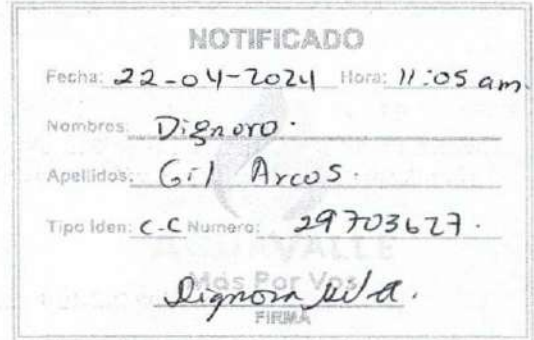 NOTIFICADO
Fecha: 22-04-2024 Hora: 11:05 am.
Nombres: Dignoro.
Apellidos: Gil Arcos.
Tipo Iden: C.C Numero: 29703627.
AGUAVALLE
Más Por Vos
Dignora Gil A.
FIRMA